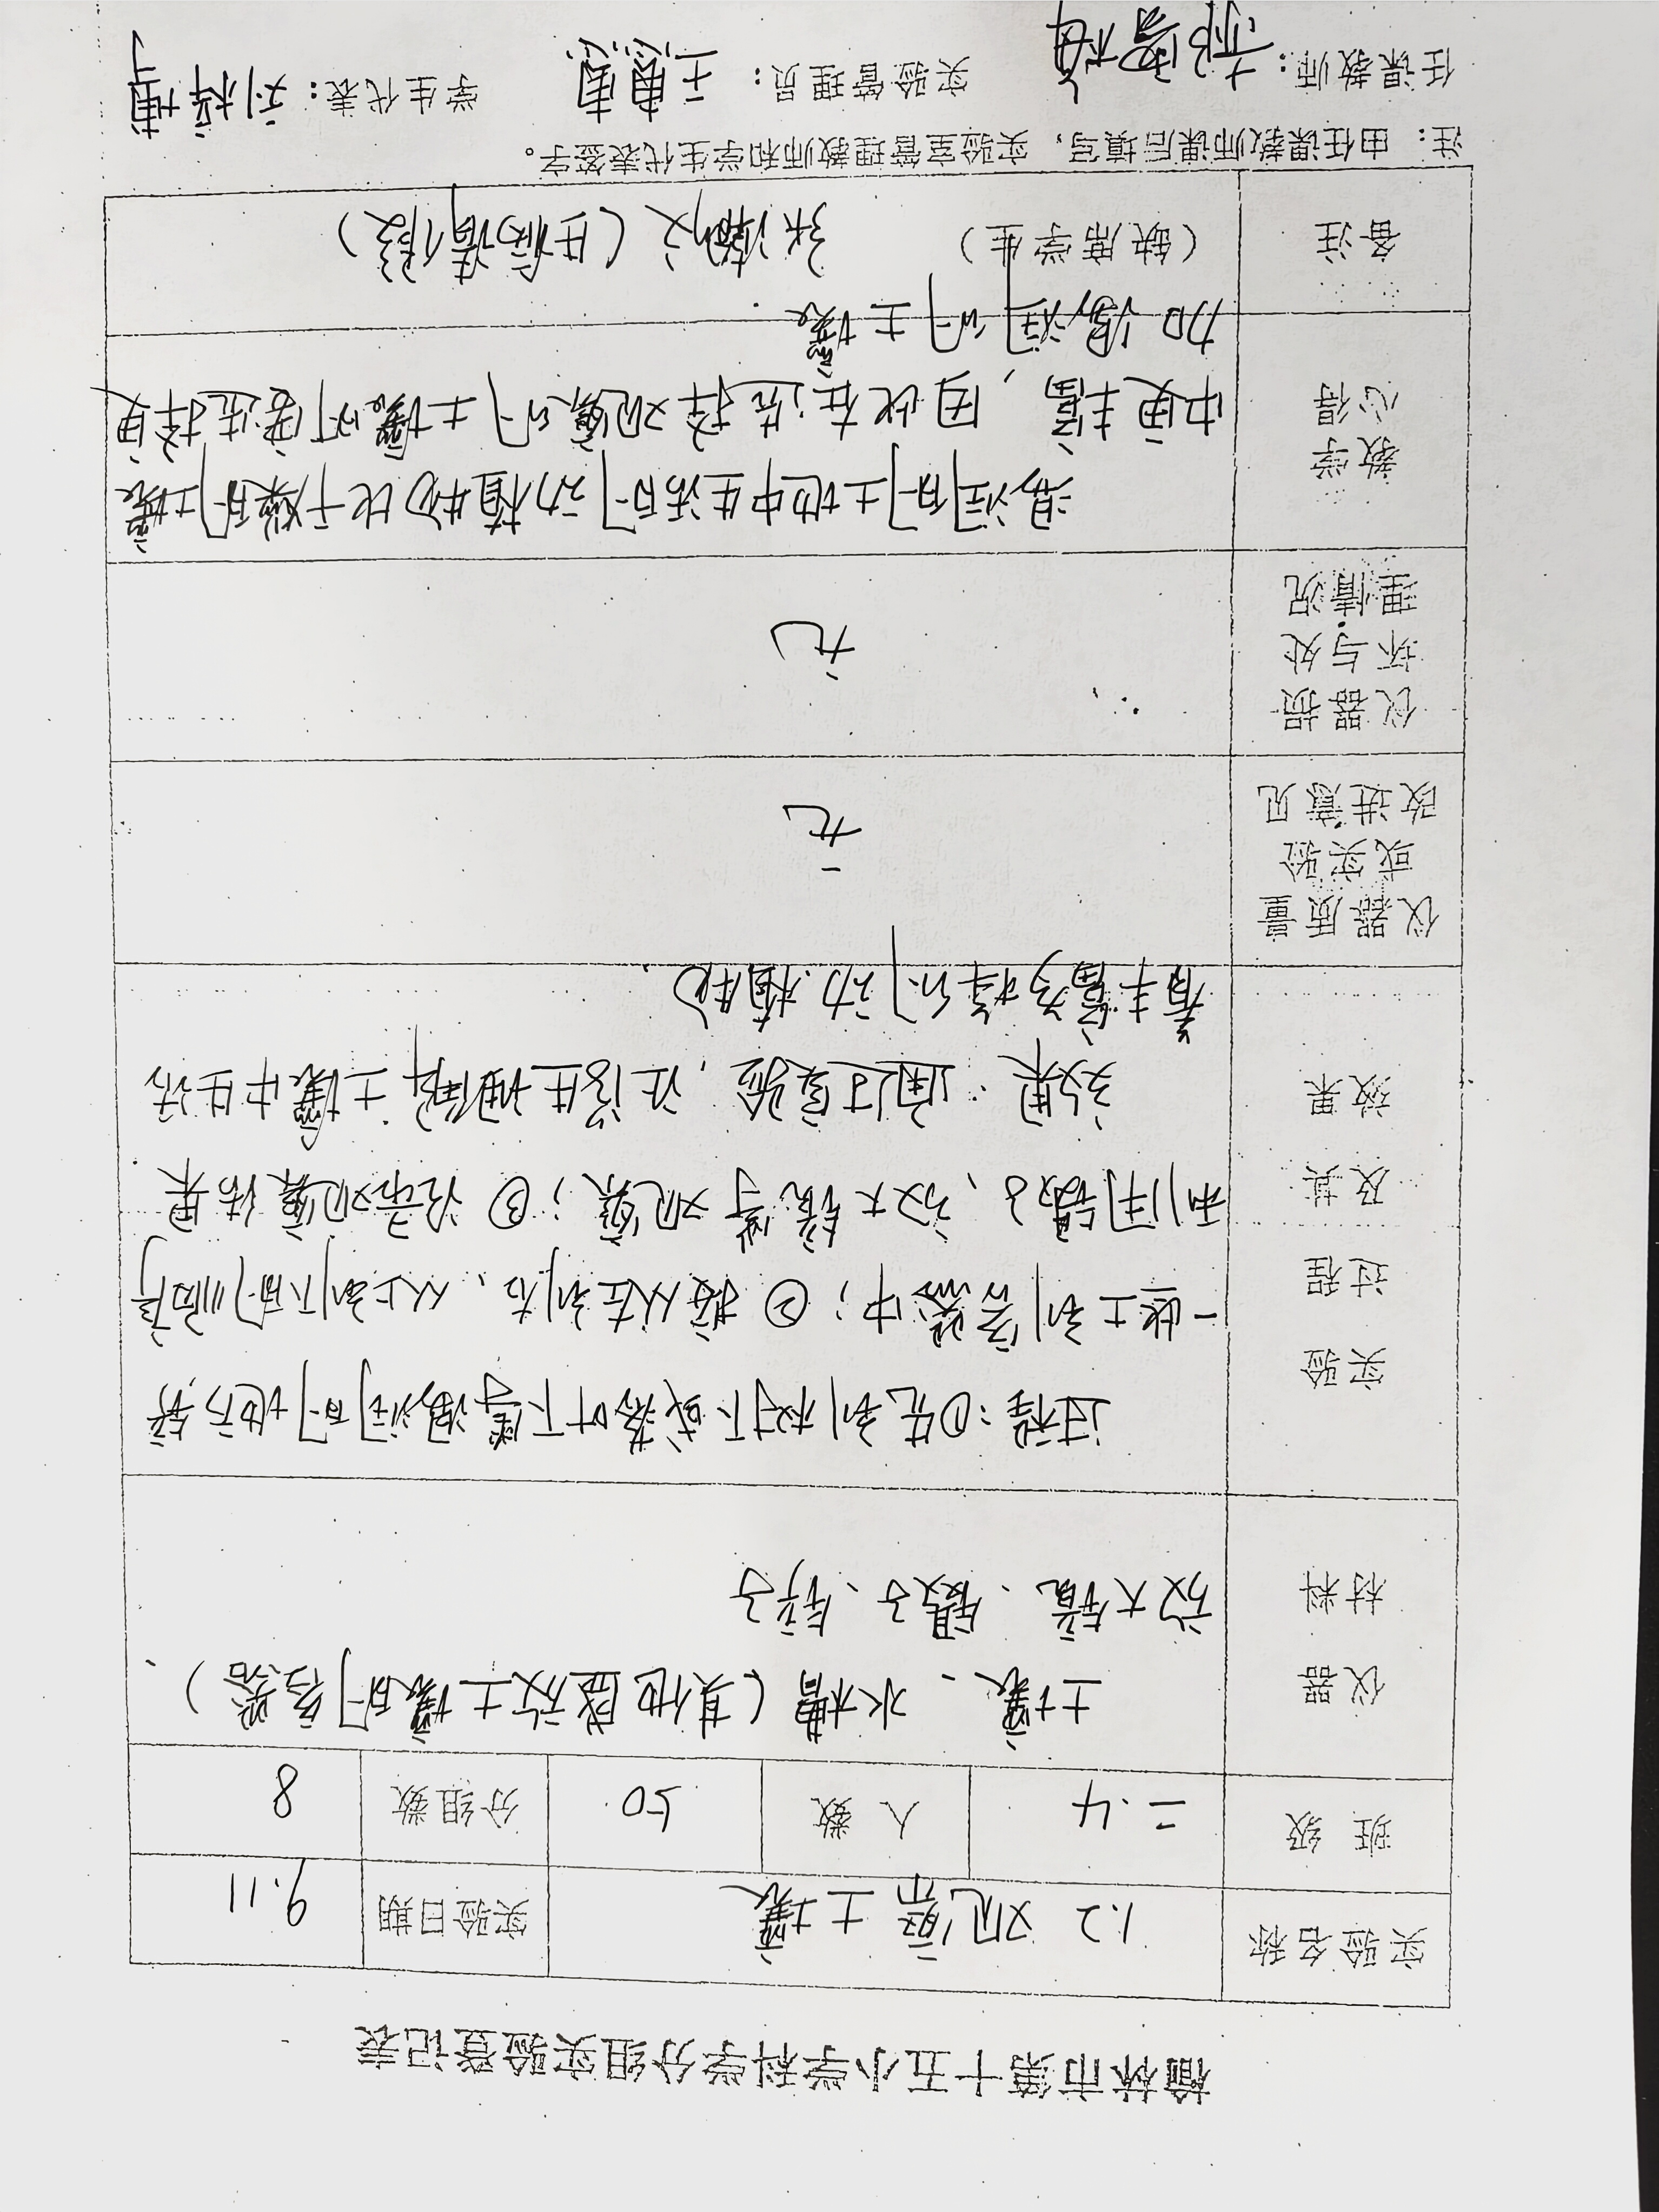 榆林市第十五小学科学分组实验登记表
实验名称 1.2 观察土壤 实验日期 9.11
班 级 二.4 人 数 50 分组数 8
仪器
材料
土壤、水槽(其他盛放土壤的容器)、
放大镜、镊子、铲子
实验
过程
及其
效果
过程:①先到树下或落叶下等湿润的地方铲
一些土到容器中;②按从左到右、从上到下的顺序
利用镊子、放大镜等观察;③记录观察结果
效果:通过实验,让学生理解土壤中生活
着丰富多样的动植物.
仪器质量
或实验
改进意见
无
仪器损
坏与处
理情况
无
教学
心得
湿润的土地中生活的动植物比干燥的土壤
中更丰富,因此在选择观察的土壤时要选择更
加湿润的土壤.
备注 (缺席学生) 张潇文(生病请假)
注:由任课教师课后填写,实验室管理教师和学生代表签字。
任课教师:郝雪梅 实验管理员: 学生代表:刘梓博